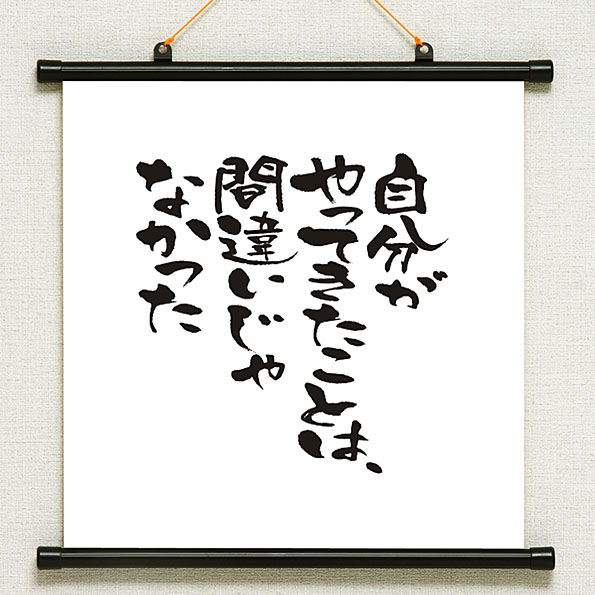 自分が
やってきたことは、
間違いじゃ
なかった